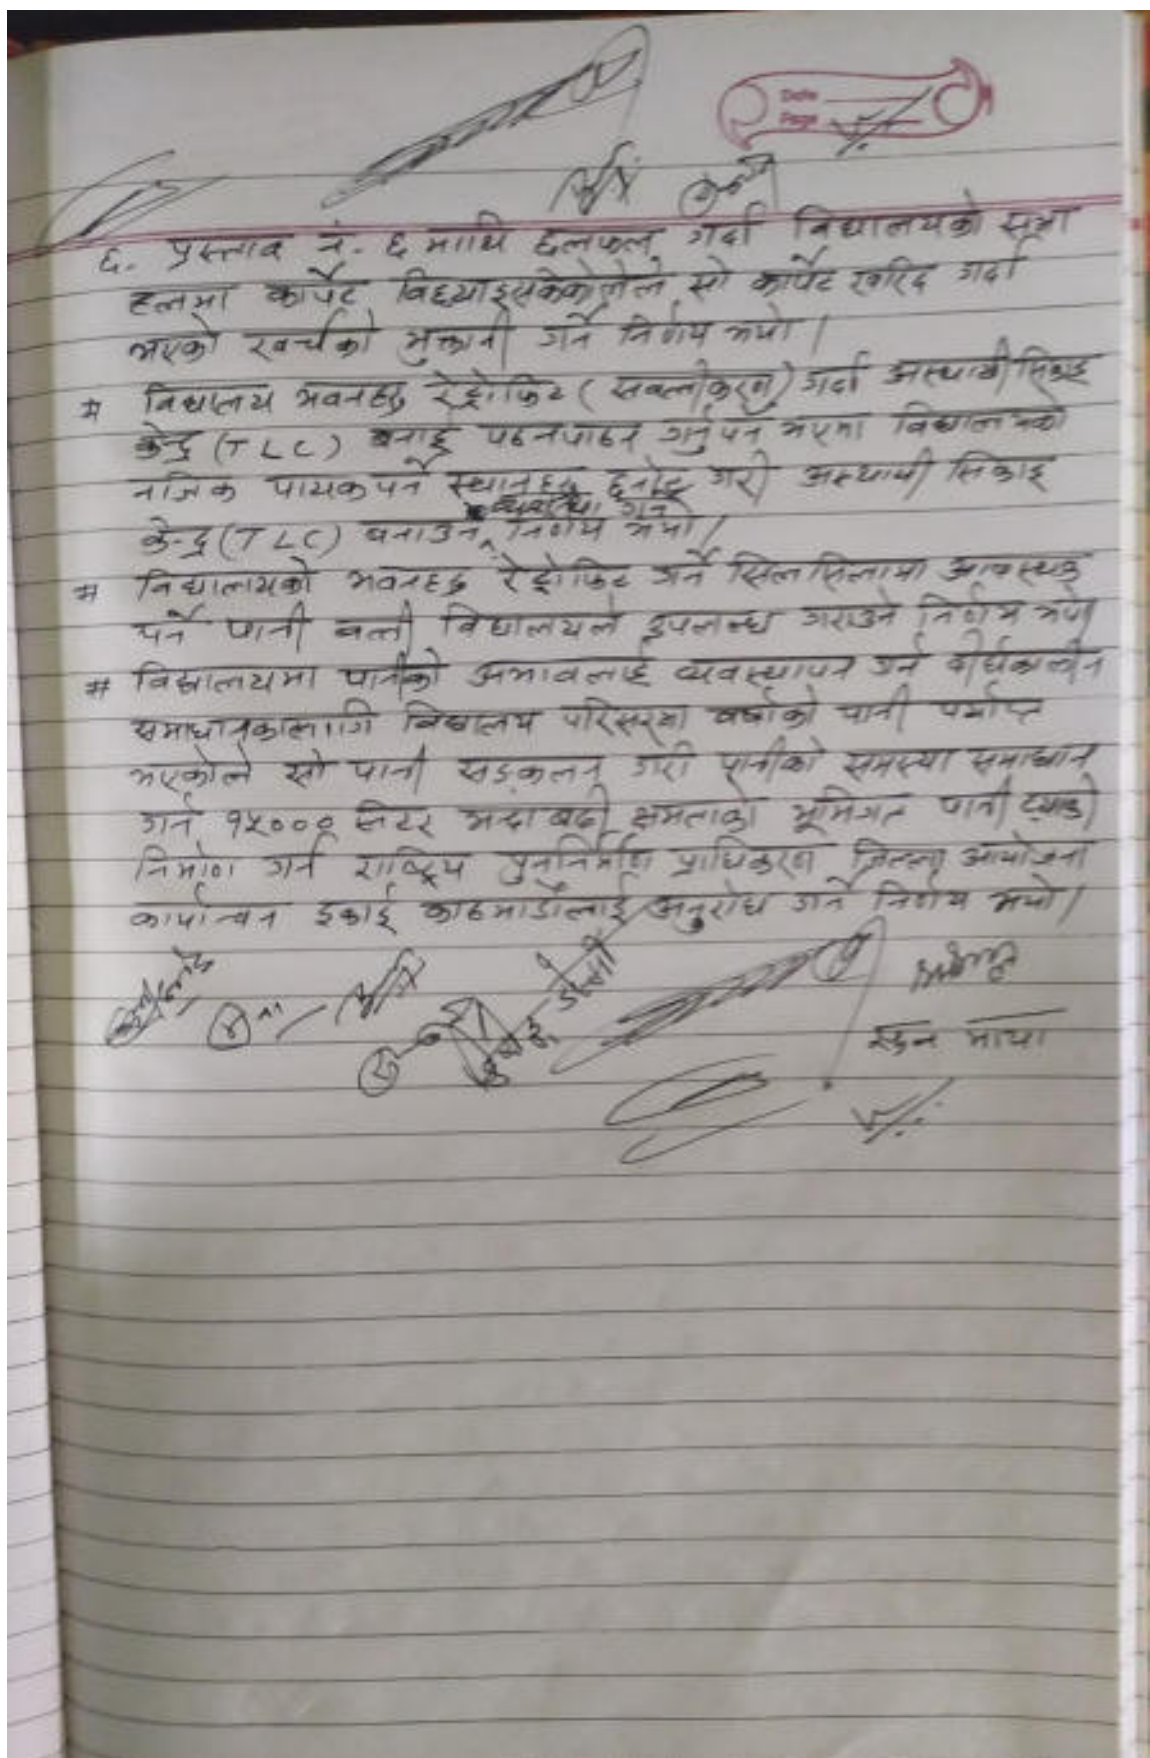 Date
Page
६. प्रस्ताव नं. ६ माथि छलफल गर्दा विद्यालयको सभा
हलमा कार्पेट विछ्याइसकेकोले सो कार्पेट खरिद गर्दा
भएको खर्चको भुक्तानी गर्ने निर्णय भयो।
# विद्यालय भवनहरु रेट्रोफिट (सवलीकरण) गर्दा अस्थायी सिकाइ
केन्द्र (TLC) बनाई पठनपाठन गर्नुपर्ने भएमा विद्यालयको
नजिक पायकपर्ने स्थानहरु छनोट गरी अस्थायी सिकाइ
व्यवस्था गर्ने
केन्द्र (TLC) बनाउन निर्णय भयो।
# विद्यालयको भवनहरु रेट्रोफिट गर्ने सिलसिलामा आवश्यक
पर्ने पानी बत्ती विद्यालयले उपलब्ध गराउने निर्णय भयो
# विद्यालयमा पानीको अभावलाई व्यवस्थापन गर्न दीर्घकालीन
समाधानकालागि विद्यालय परिसरमा वर्षाको पानी पर्याप्त
भएकोले सो पानी सङ्कलन गरी पानीको समस्या समाधान
गर्न १५००० लिटर भन्दा बढी क्षमताको भूमिगत पानी ट्याङ्की
निर्माण गर्न राष्ट्रिय पुनर्निर्माण प्राधिकरण जिल्ला आयोजना
कार्यान्वन इकाई काठमाडौंलाई अनुरोध गर्ने निर्णय भयो।
माया